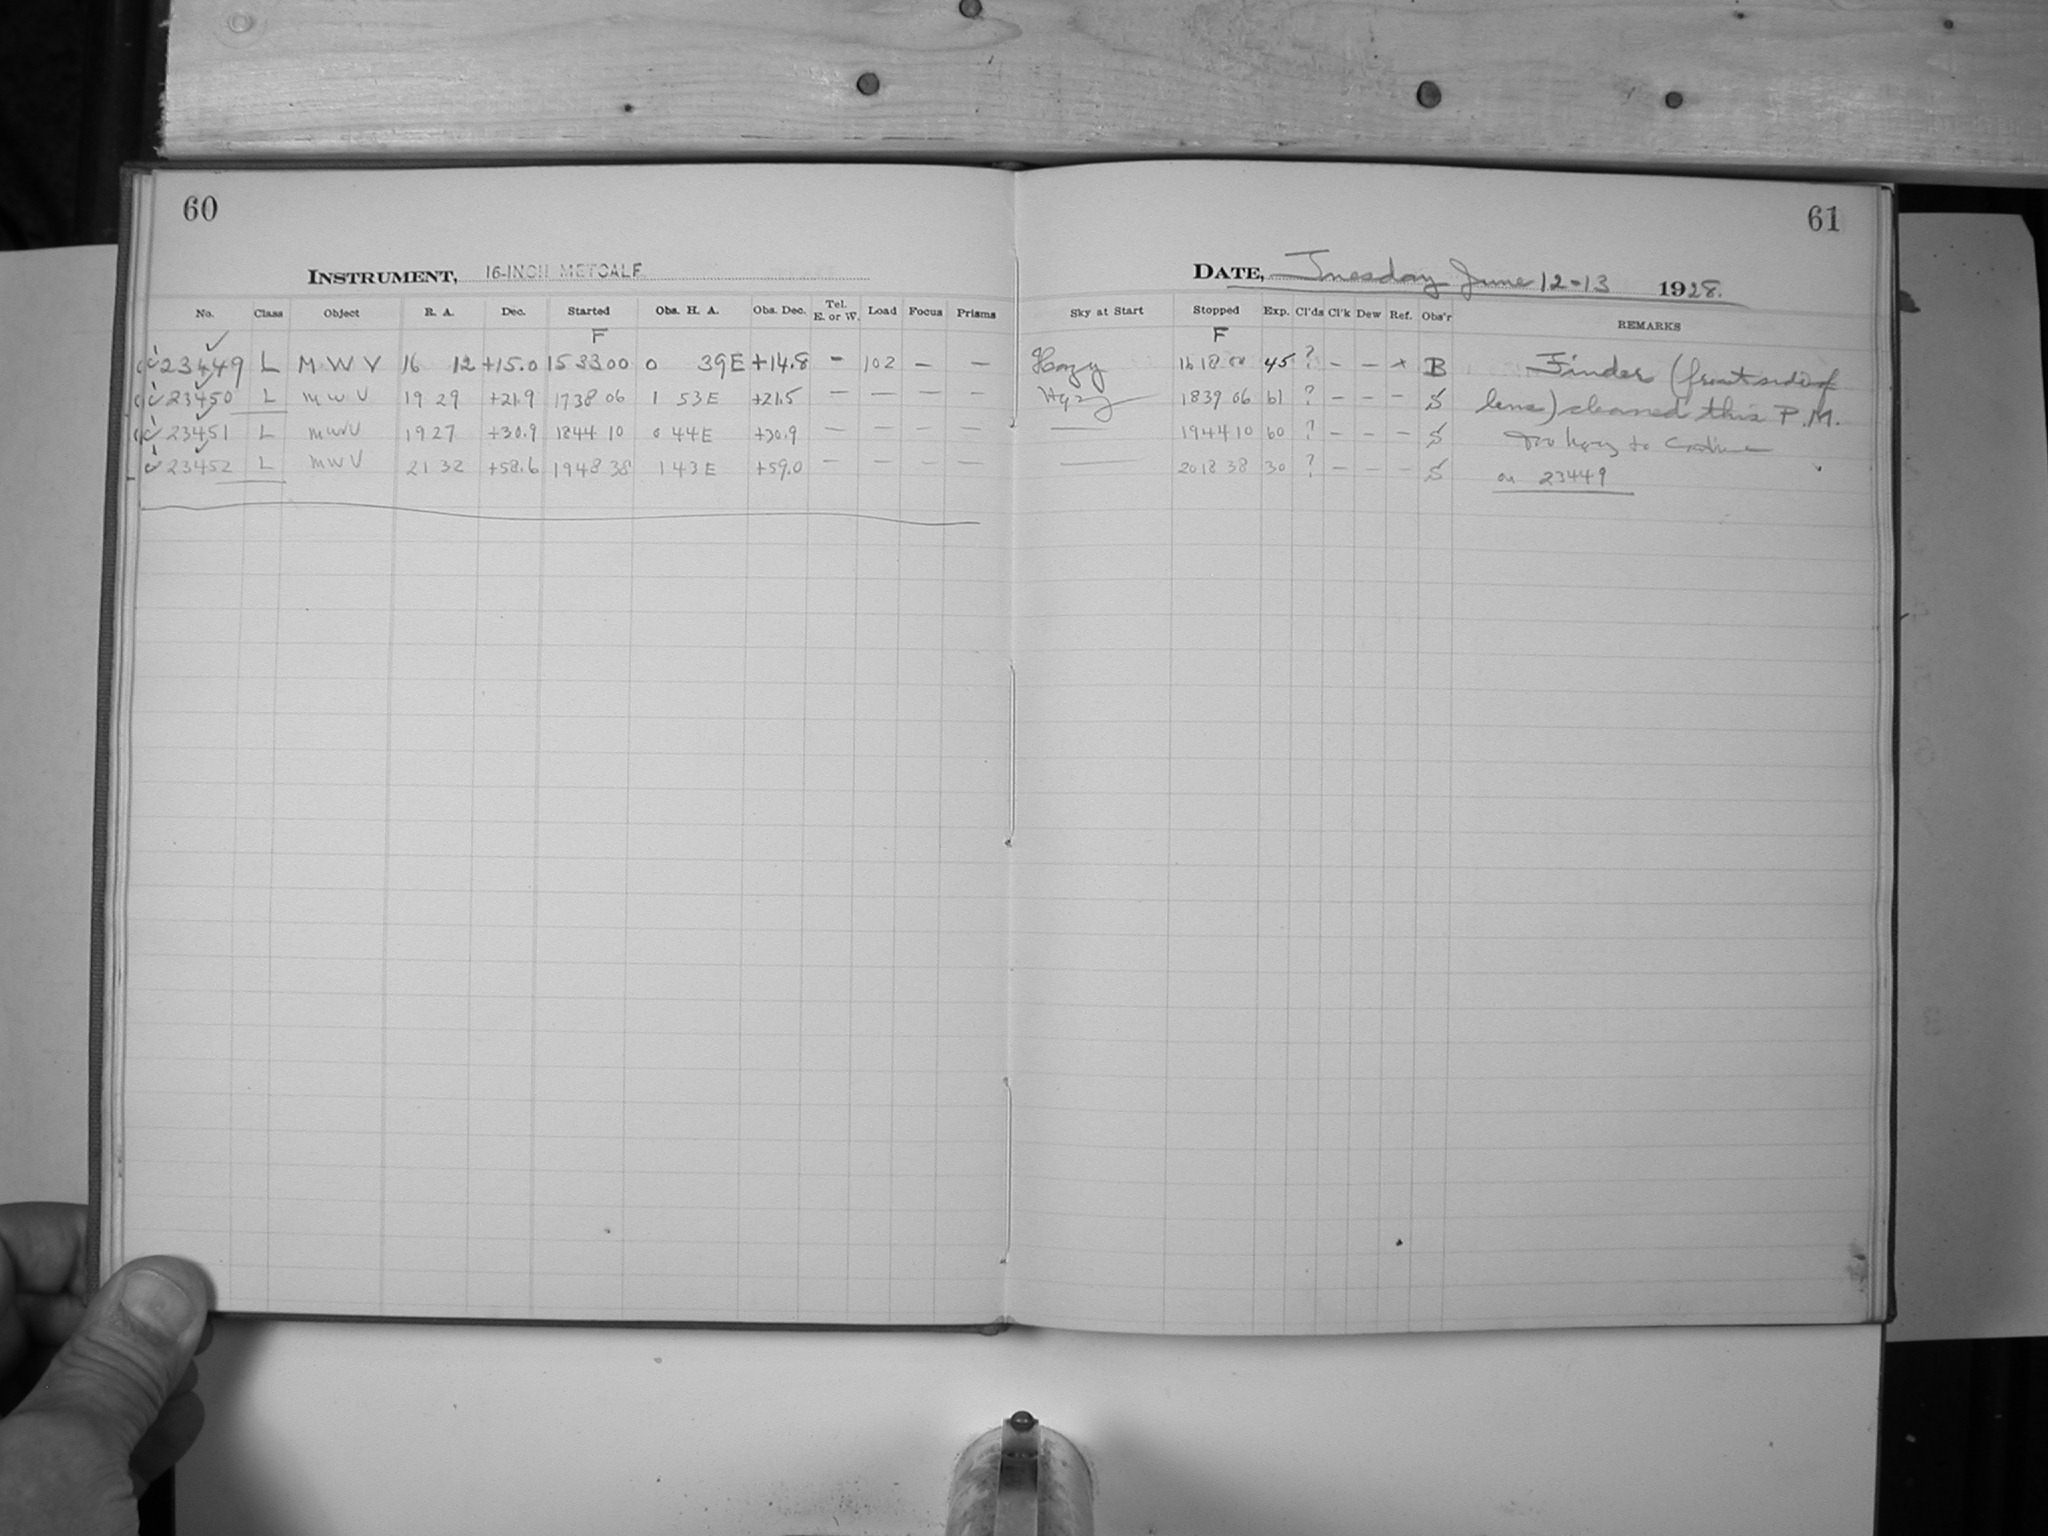 60
INSTRUMENT, 16-INCH METCALF
No. Class Object R. A. Dec. Started Obs. H. A. Obs. Dec. Tel. E. or W. Load Focus Prisms
F
23449 L M W V 16 12 +15.0 15 33 00 0 39 E +14.8 - 102 - -
23450 L M W V 19 29 +21.9 17 38 06 1 53 E +21.5 - - - -
23451 L M W V 19 27 +30.9 18 44 10 0 44 E +30.9 - - - -
23452 L M W V 21 32 +58.6 19 48 38 1 43 E +59.0 - - - -
61
DATE, Tuesday June 12-13 1928.
Sky at Start Stopped Exp. Cl'ds Cl'k Dew Ref. Obs'r REMARKS
F
Hazy 16 18 00 45 ? - - B Finder (front side of
Hazy 18 39 06 61 ? - - - S lens) cleaned this P.M.
— 19 44 10 60 ? - - - S Too hazy to continue
— 20 18 38 30 ? - - - S on 23449